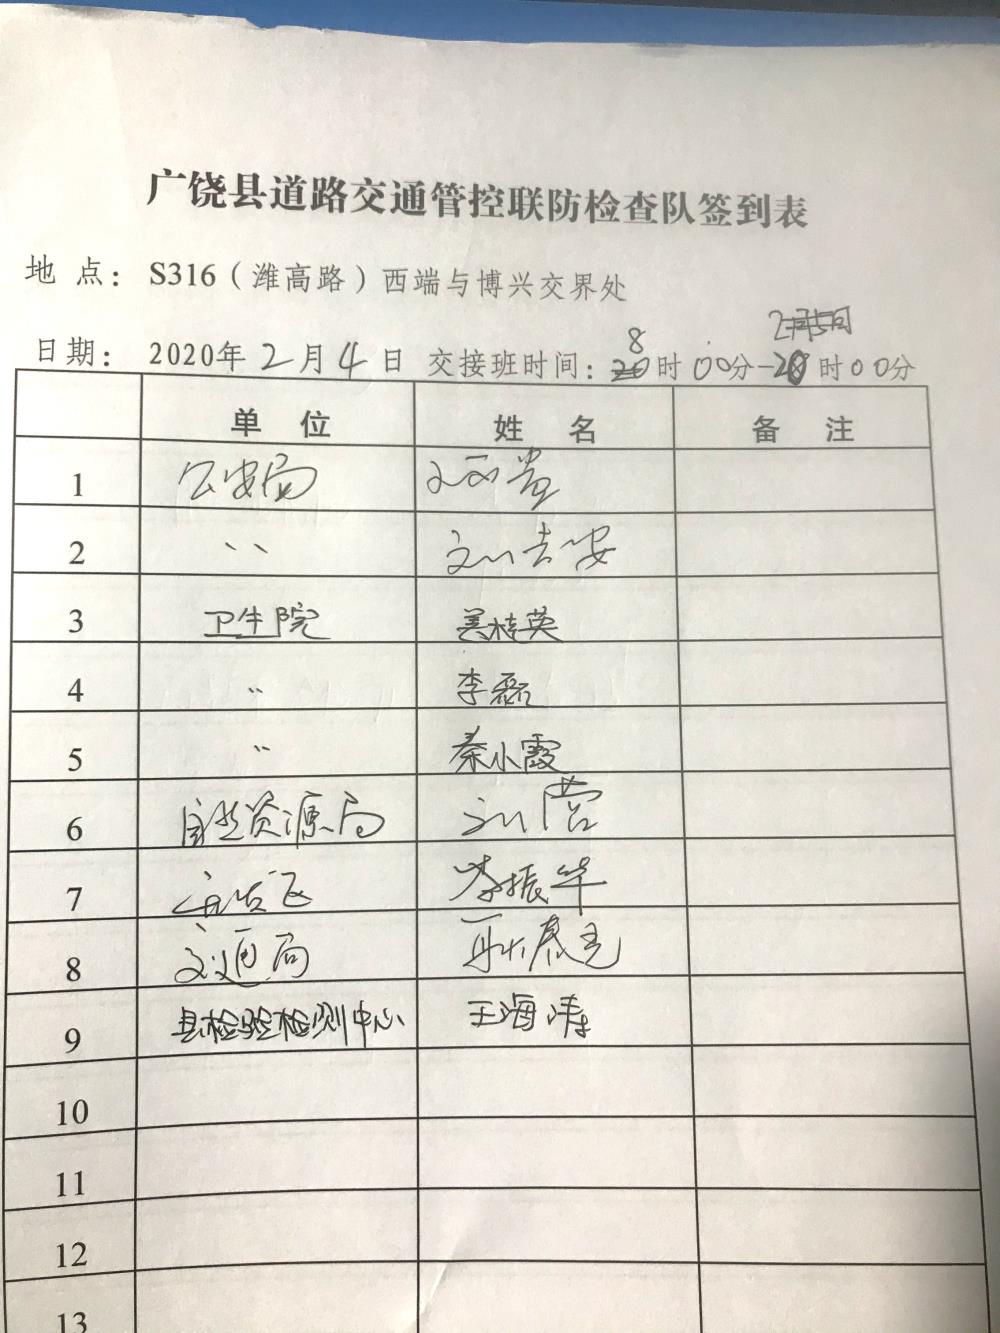 广饶县道路交通管控联防检查队签到表
地 点：S316（潍高路）西端与博兴交界处
日期：2020年2月4日 交接班时间：8时00分-20时00分
单 位 姓 名 备 注
1 公安局
2 〃 刘吉安
3 卫生院 吴桂英
4 〃 李磊
5 〃 秦小霞
6 自然资源局 刘营
7 李振华
8 交通局
9 县检验检测中心 王海涛
10
11
12
13